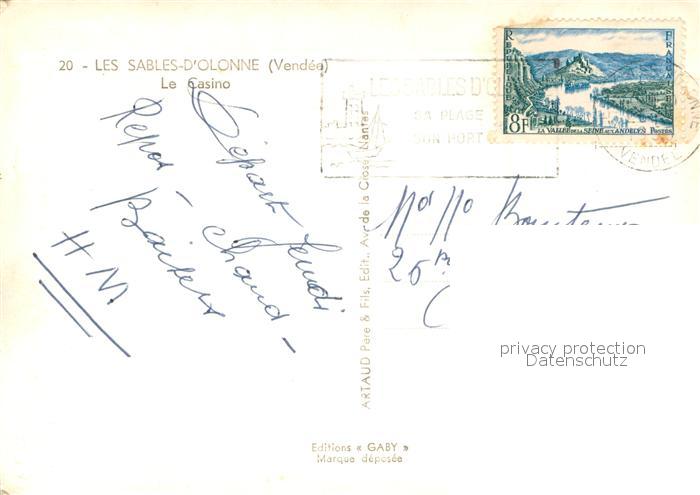 20 - LES SABLES-D'OLONNE (Vendée)
Le Casino
Départ Jeudi
Repos - Chaud -
Baisers
H M
ARTAUD Père & Fils, Edit., Av. de la Close, Nantes
Editions « GABY »
Marque déposée
LES SABLES D'O
SA PLAGE
SON PORT
REPUBLIQUE
FRANÇAISE
8F
LA VALLÉE DE LA SEINE AUX ANDELYS POSTES
VENDEE
25
privacy protection
Datenschutz